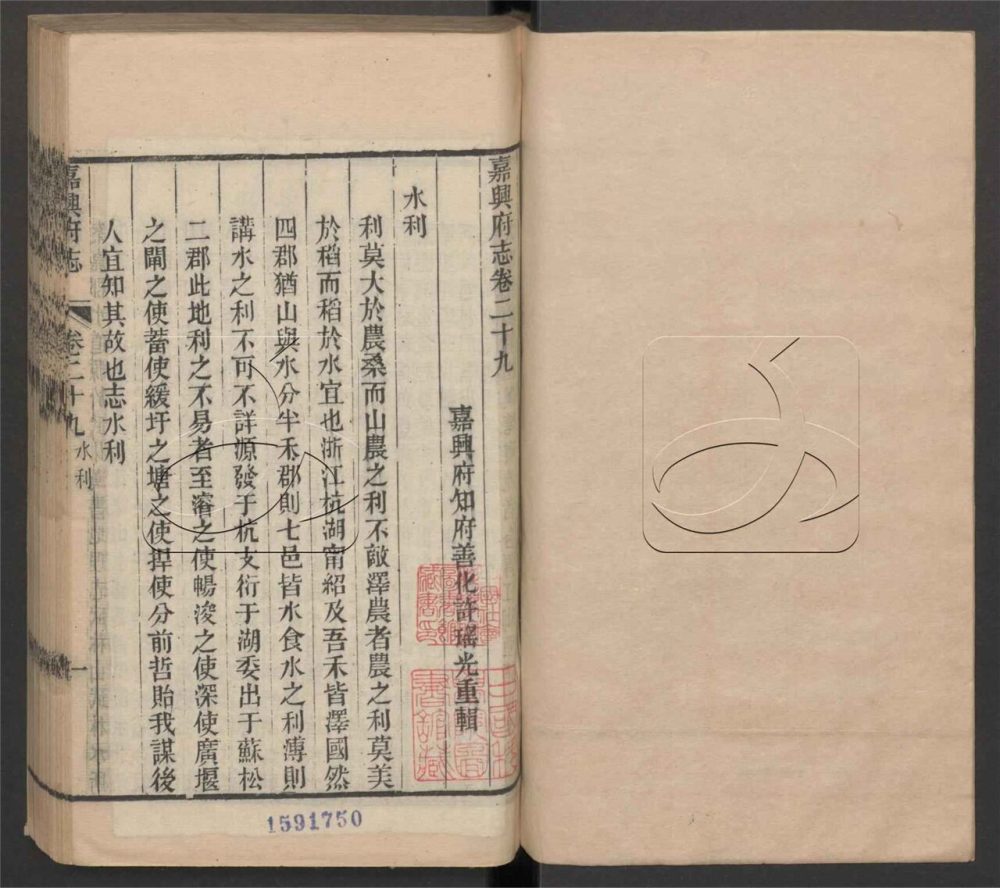 嘉興府志卷二十九
嘉興府知府善化許瑤光重輯
水利
利莫大於農桑而山農之利不敵澤農者農之利莫美
於稻而稻於水宜也浙江杭湖甯紹及吾禾皆澤國然
四郡猶山與水分半禾郡則七邑皆水食水之利溥則
講水之利不可不詳源發于杭支衍于湖委出于蘇松
二郡此地利之不易者至濬之使暢浚之使深使廣堰
之閘之使蓄使緩圩之塘之使捍使分前哲貽我謀後
人宜知其故也志水利
嘉興府志 卷二十九 水利 一
1591750